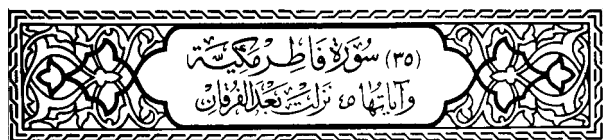 (٣٥) سُورَة فَاطِر مَكِّيَّة
وَآيَاتُهَا ٤٥ نَزَلَتْ بَعْدَ الفُرْقَان